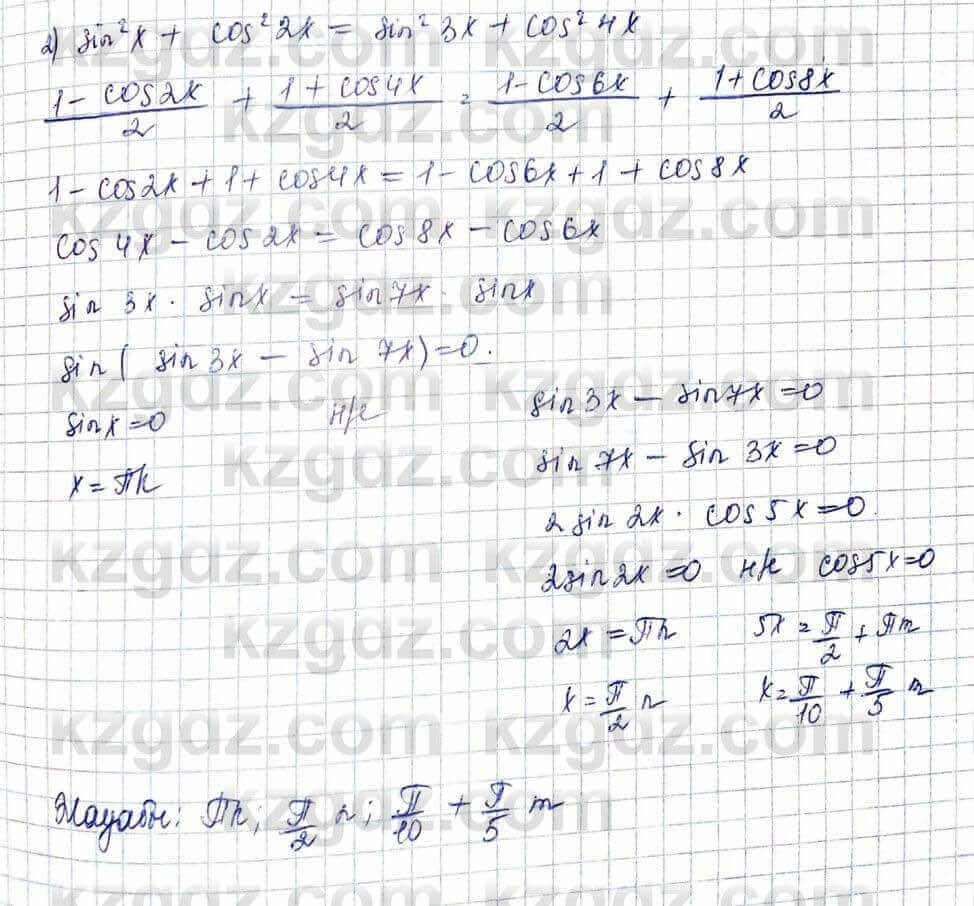 2) sin²x + cos²2x = sin²3x + cos²4x
(1 - cos2x)/2 + (1 + cos4x)/2 = (1 - cos6x)/2 + (1 + cos8x)/2
1 - cos2x + 1 + cos4x = 1 - cos6x + 1 + cos8x
cos4x - cos2x = cos8x - cos6x
sin 3x · sinx = sin7x · sinx
sin ( sin3x - sin 7x) = 0.
sinx = 0 н/е sin3x - sin7x = 0
x = πk sin 7x - sin 3x = 0
2 sin 2x · cos5x = 0.
2sin2x = 0 н/е cos5x = 0
2x = πn 5x = π/2 + πm
x = π/2 n x = π/10 + π/5 m
Жауабы: πk; π/2 n; π/10 + π/5 m
kzgdz.com